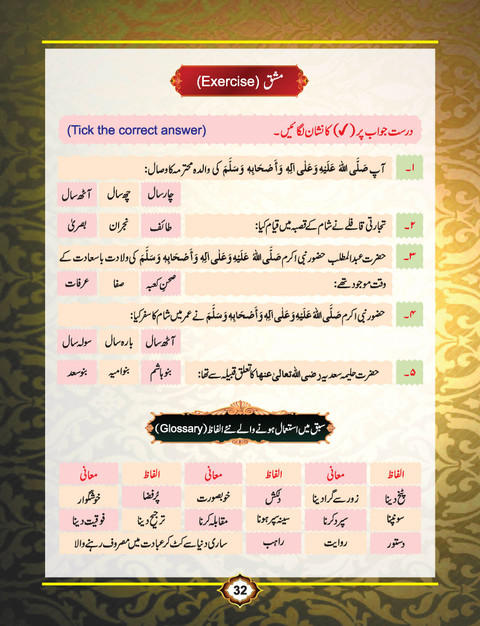 مشق (Exercise)
درست جواب پر (✓) کا نشان لگائیں۔ (Tick the correct answer)
۱۔ آپ صَلَّى اللهُ عَلَيْهِ وَعَلٰى اٰلِهٖ وَأَصْحَابِهٖ وَسَلَّمَ کی والدہ محترمہ کا وصال:
چار سال چھ سال آٹھ سال
۲۔ تجارتی قافلے نے شام کے قصبہ میں قیام کیا: طائف نجران بصریٰ
۳۔ حضرت عبدالمطلب حضور نبی اکرم صَلَّى اللهُ عَلَيْهِ وَعَلٰى اٰلِهٖ وَأَصْحَابِهٖ وَسَلَّمَ کی ولادت باسعادت کے
وقت موجود تھے: صحنِ کعبہ صفا عرفات
۴۔ حضور نبی اکرم صَلَّى اللهُ عَلَيْهِ وَعَلٰى اٰلِهٖ وَأَصْحَابِهٖ وَسَلَّمَ نے عمر میں شام کا سفر کیا:
آٹھ سال بارہ سال سولہ سال
۵۔ حضرت حلیمہ سعدیہ رضی اللہ تعالیٰ عنھا کا تعلق قبیلہ سے تھا: بنو ہاشم بنو امیہ بنو سعد
سبق میں استعمال ہونے والے نئے الفاظ (Glossary)
الفاظ معانی الفاظ معانی الفاظ معانی
پٹخ دینا زور سے گرا دینا دلکش خوبصورت پُرفضا خوشگوار
سونپنا سپرد کرنا سینہ سپر ہونا مقابلہ کرنا ترجیح دینا فوقیت دینا
دستور روایت راہب ساری دنیا سے کٹ کر عبادت میں مصروف رہنے والا
32